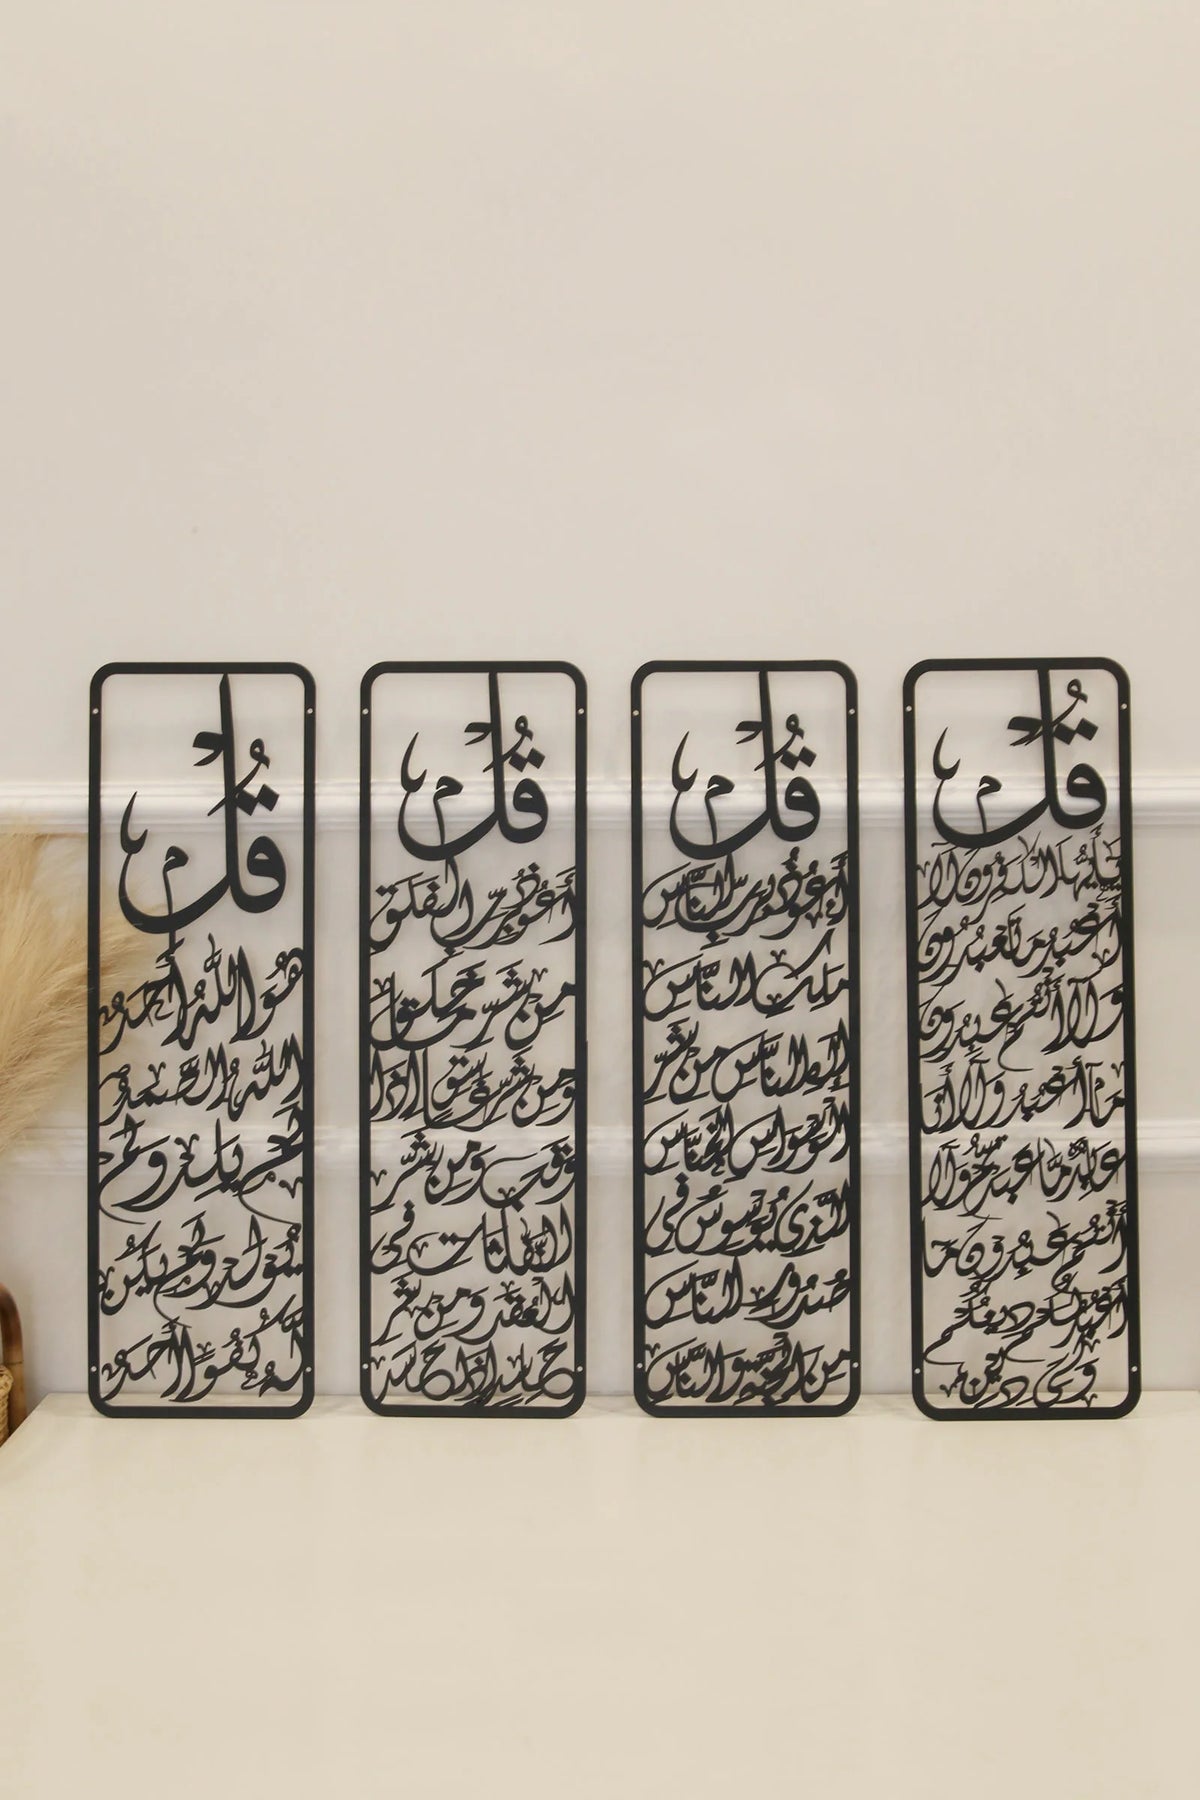 قُلْ
هُوَ اللَّهُ أَحَدٌ
اللَّهُ الصَّمَدُ
لَمْ يَلِدْ وَلَمْ
يُولَدْ وَلَمْ يَكُنْ
لَهُ كُفُوًا أَحَدٌ
قُلْ
أَعُوذُ بِرَبِّ الْفَلَقِ
مِنْ شَرِّ مَا خَلَقَ
وَمِنْ شَرِّ غَاسِقٍ إِذَا
وَقَبَ وَمِنْ شَرِّ
النَّفَّاثَاتِ فِي
الْعُقَدِ وَمِنْ شَرِّ
حَاسِدٍ إِذَا حَسَدَ
قُلْ
أَعُوذُ بِرَبِّ النَّاسِ
مَلِكِ النَّاسِ
إِلَهِ النَّاسِ مِنْ شَرِّ
الْوَسْوَاسِ الْخَنَّاسِ
الَّذِي يُوَسْوِسُ فِي
صُدُورِ النَّاسِ
مِنَ الْجِنَّةِ وَالنَّاسِ
قُلْ
يَأَيُّهَا الْكَفِرُونَ لَا
أَعْبُدُ مَا تَعْبُدُونَ
وَلَا أَنْتُمْ عَبِدُونَ
مَا أَعْبُدُ وَلَا أَنَا
عَابِدٌ مَا عَبَدْتُمْ وَلَا
أَنْتُمْ عَبِدُونَ مَا
أَعْبُدُ لَكُمْ دِينُكُمْ
وَلِيَ دِينِ